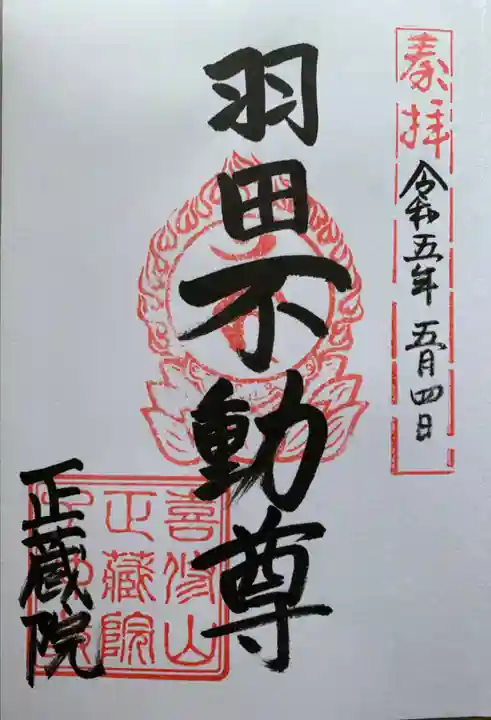 奉拝
令和五年 五月四日
羽田不動尊
正蔵院